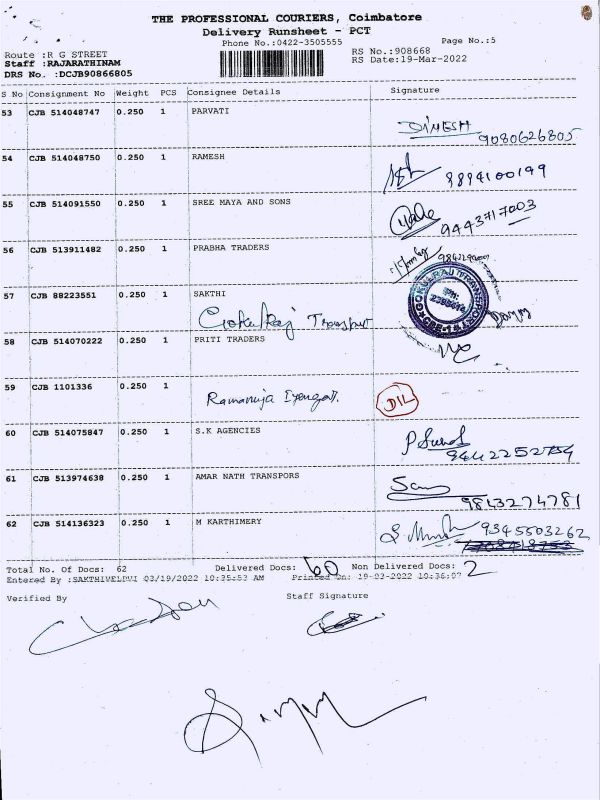 THE PROFESSIONAL COURIERS, Coimbatore
Delivery Runsheet - PCT
Phone No.:0422-3505555
Page No.:5
Route :R G STREET
Staff :RAJARATHINAM
DRS No. :DCJB90866805
RS No.:908668
RS Date:19-Mar-2022
S No Consignment No Weight PCS Consignee Details Signature
53 CJB 514048747 0.250 1 PARVATI
DINESH
9080626805
54 CJB 514048750 0.250 1 RAMESH
9894100199
55 CJB 514091550 0.250 1 SREE MAYA AND SONS
9443717003
56 CJB 513911482 0.250 1 PRABHA TRADERS
57 CJB 88223551 0.250 1 SAKTHI
Gokulraj Transport
GOKULRAJ TRANSPORT
58 CJB 514070222 0.250 1 PRITI TRADERS
59 CJB 1101336 0.250 1 Ramanuja Iyengar.
DIL
60 CJB 514075847 0.250 1 S.K AGENCIES
61 CJB 513974638 0.250 1 AMAR NATH TRANSPORS
9843274781
62 CJB 514136323 0.250 1 M KARTHIMERY
9345503262
Total No. Of Docs: 62 Delivered Docs: 60 Non Delivered Docs: 2
Entered By :SAKTHIVELDVI 03/19/2022 10:35:53 AM Printed On: 19-03-2022 10:36:07
Verified By
Staff Signature